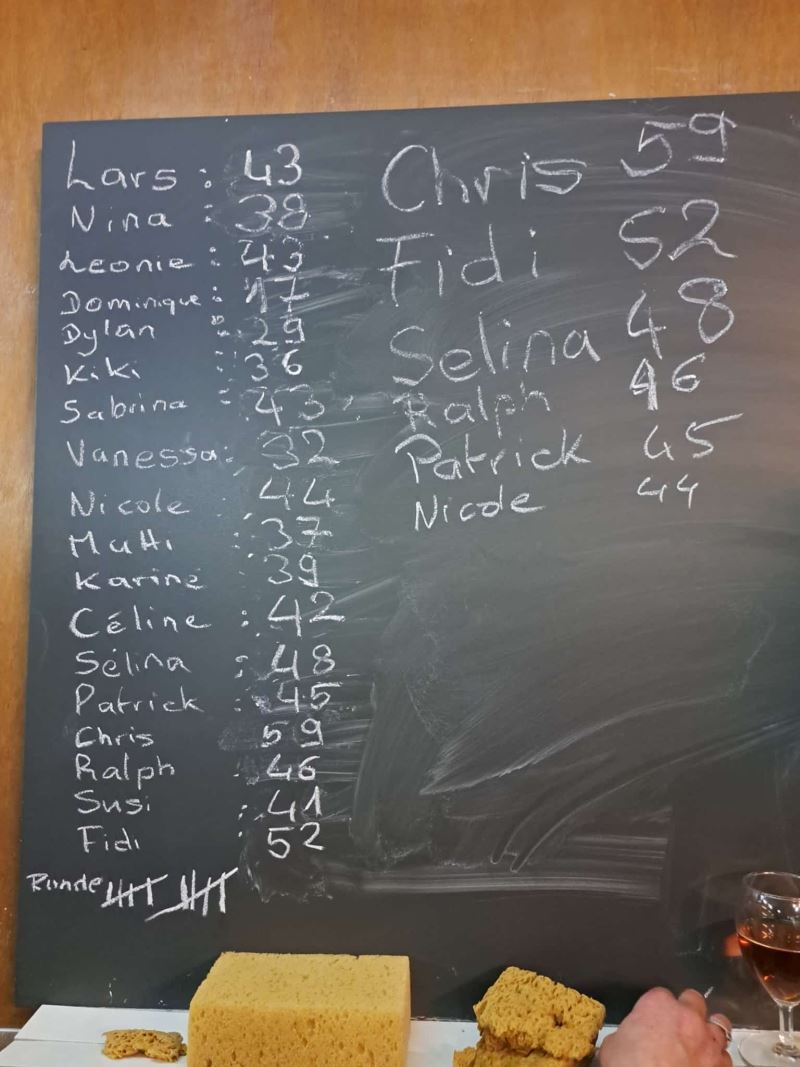 Lars : 43
Nina : 38
Leonie : 43
Dominique : 17
Dylan : 29
Kiki : 36
Sabrina : 43
Vanessa : 32
Nicole : 44
Mutti : 37
Karine : 39
Céline : 42
Sélina : 48
Patrick : 45
Chris 59
Ralph : 46
Susi : 41
Fidi : 52
Runde
Chris 59
Fidi 52
Selina 48
Ralph 46
Patrick 45
Nicole 44